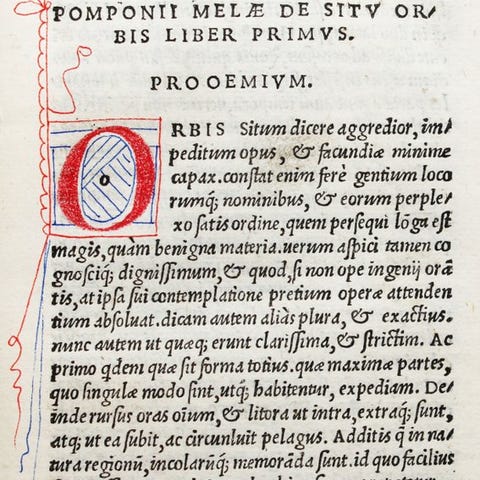 POMPONII MELÆ DE SITV OR/
BIS LIBER PRIMVS.
PROOEMIVM.
ORBIS Situm dicere aggredior, im/
peditum opus, & facundiæ minime
capax.constat enim ferè gentium loco
rumq; nominibus, & eorum perple/
xo satis ordine, quem persequi lõga est
magis, quàm benigna materia.uerum aspici tamen co
gnosciq; dignissimum, & quod, si non ope ingenij orã
tis, at ipsa sui contemplatione pretium operæ attenden
tium absoluat.dicam autem aliàs plura, & exactius.
nunc autem ut quæq; erunt clarissima, & strictim. Ac
primo qdem quæ sit forma totius.quæ maximæ partes,
quo singulæ modo sint, utq; habitentur, expediam. De/
inde rursus oras oĩum, & litora ut intra, extraq; sunt,
atq; ut ea subit, ac circunluit pelagus. Additis q̃ in na/
tura regionũ, incolarũq; memorãda sunt.id quo facilius